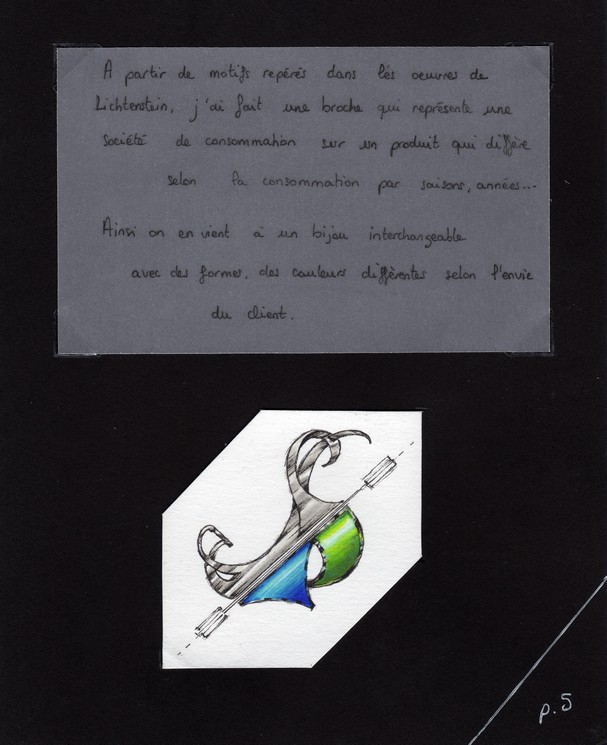 A partir de motifs repérés dans les oeuvres de
Lichtenstein, j'ai fait une broche qui représente une
société de consommation sur un produit qui diffère
selon la consommation par saisons, années...
Ainsi on en vient à un bijou interchangeable
avec des formes, des couleurs différentes selon l'envie
du client.
p.5